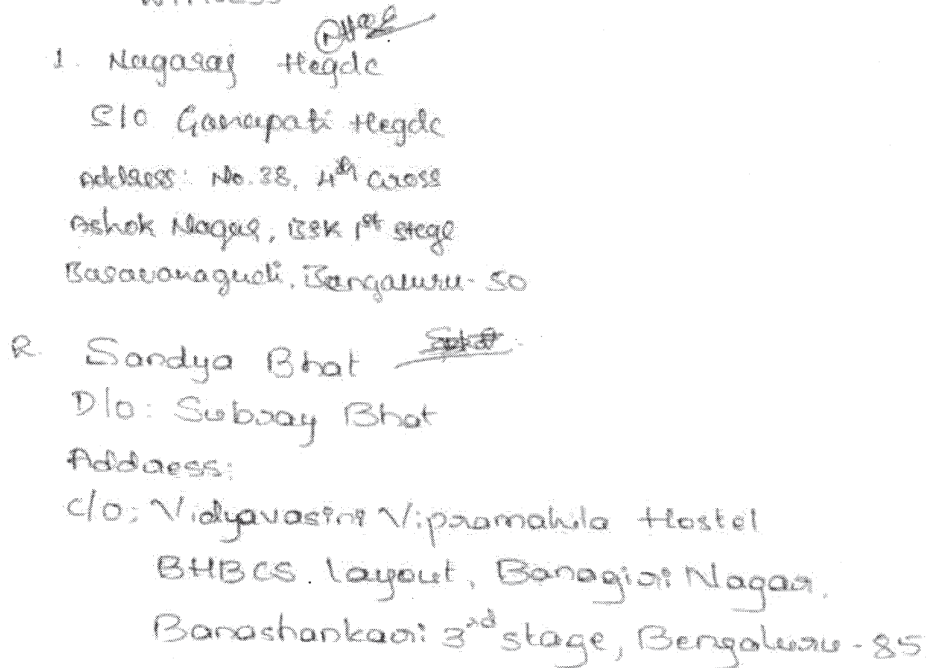 1. Nagaraj Hegde
S/o Ganapati Hegde
Address: No. 38, 4th cross
Ashok Nagar, BSK 1st stage
Basavanagudi, Bengaluru - 50
2. Sandya Bhat
D/o: Subray Bhat
Address:
c/o: Vidyavasini Vipramahila Hostel
BHBCS. layout, Banagiri Nagar,
Banashankari 3rd stage, Bengaluru - 85